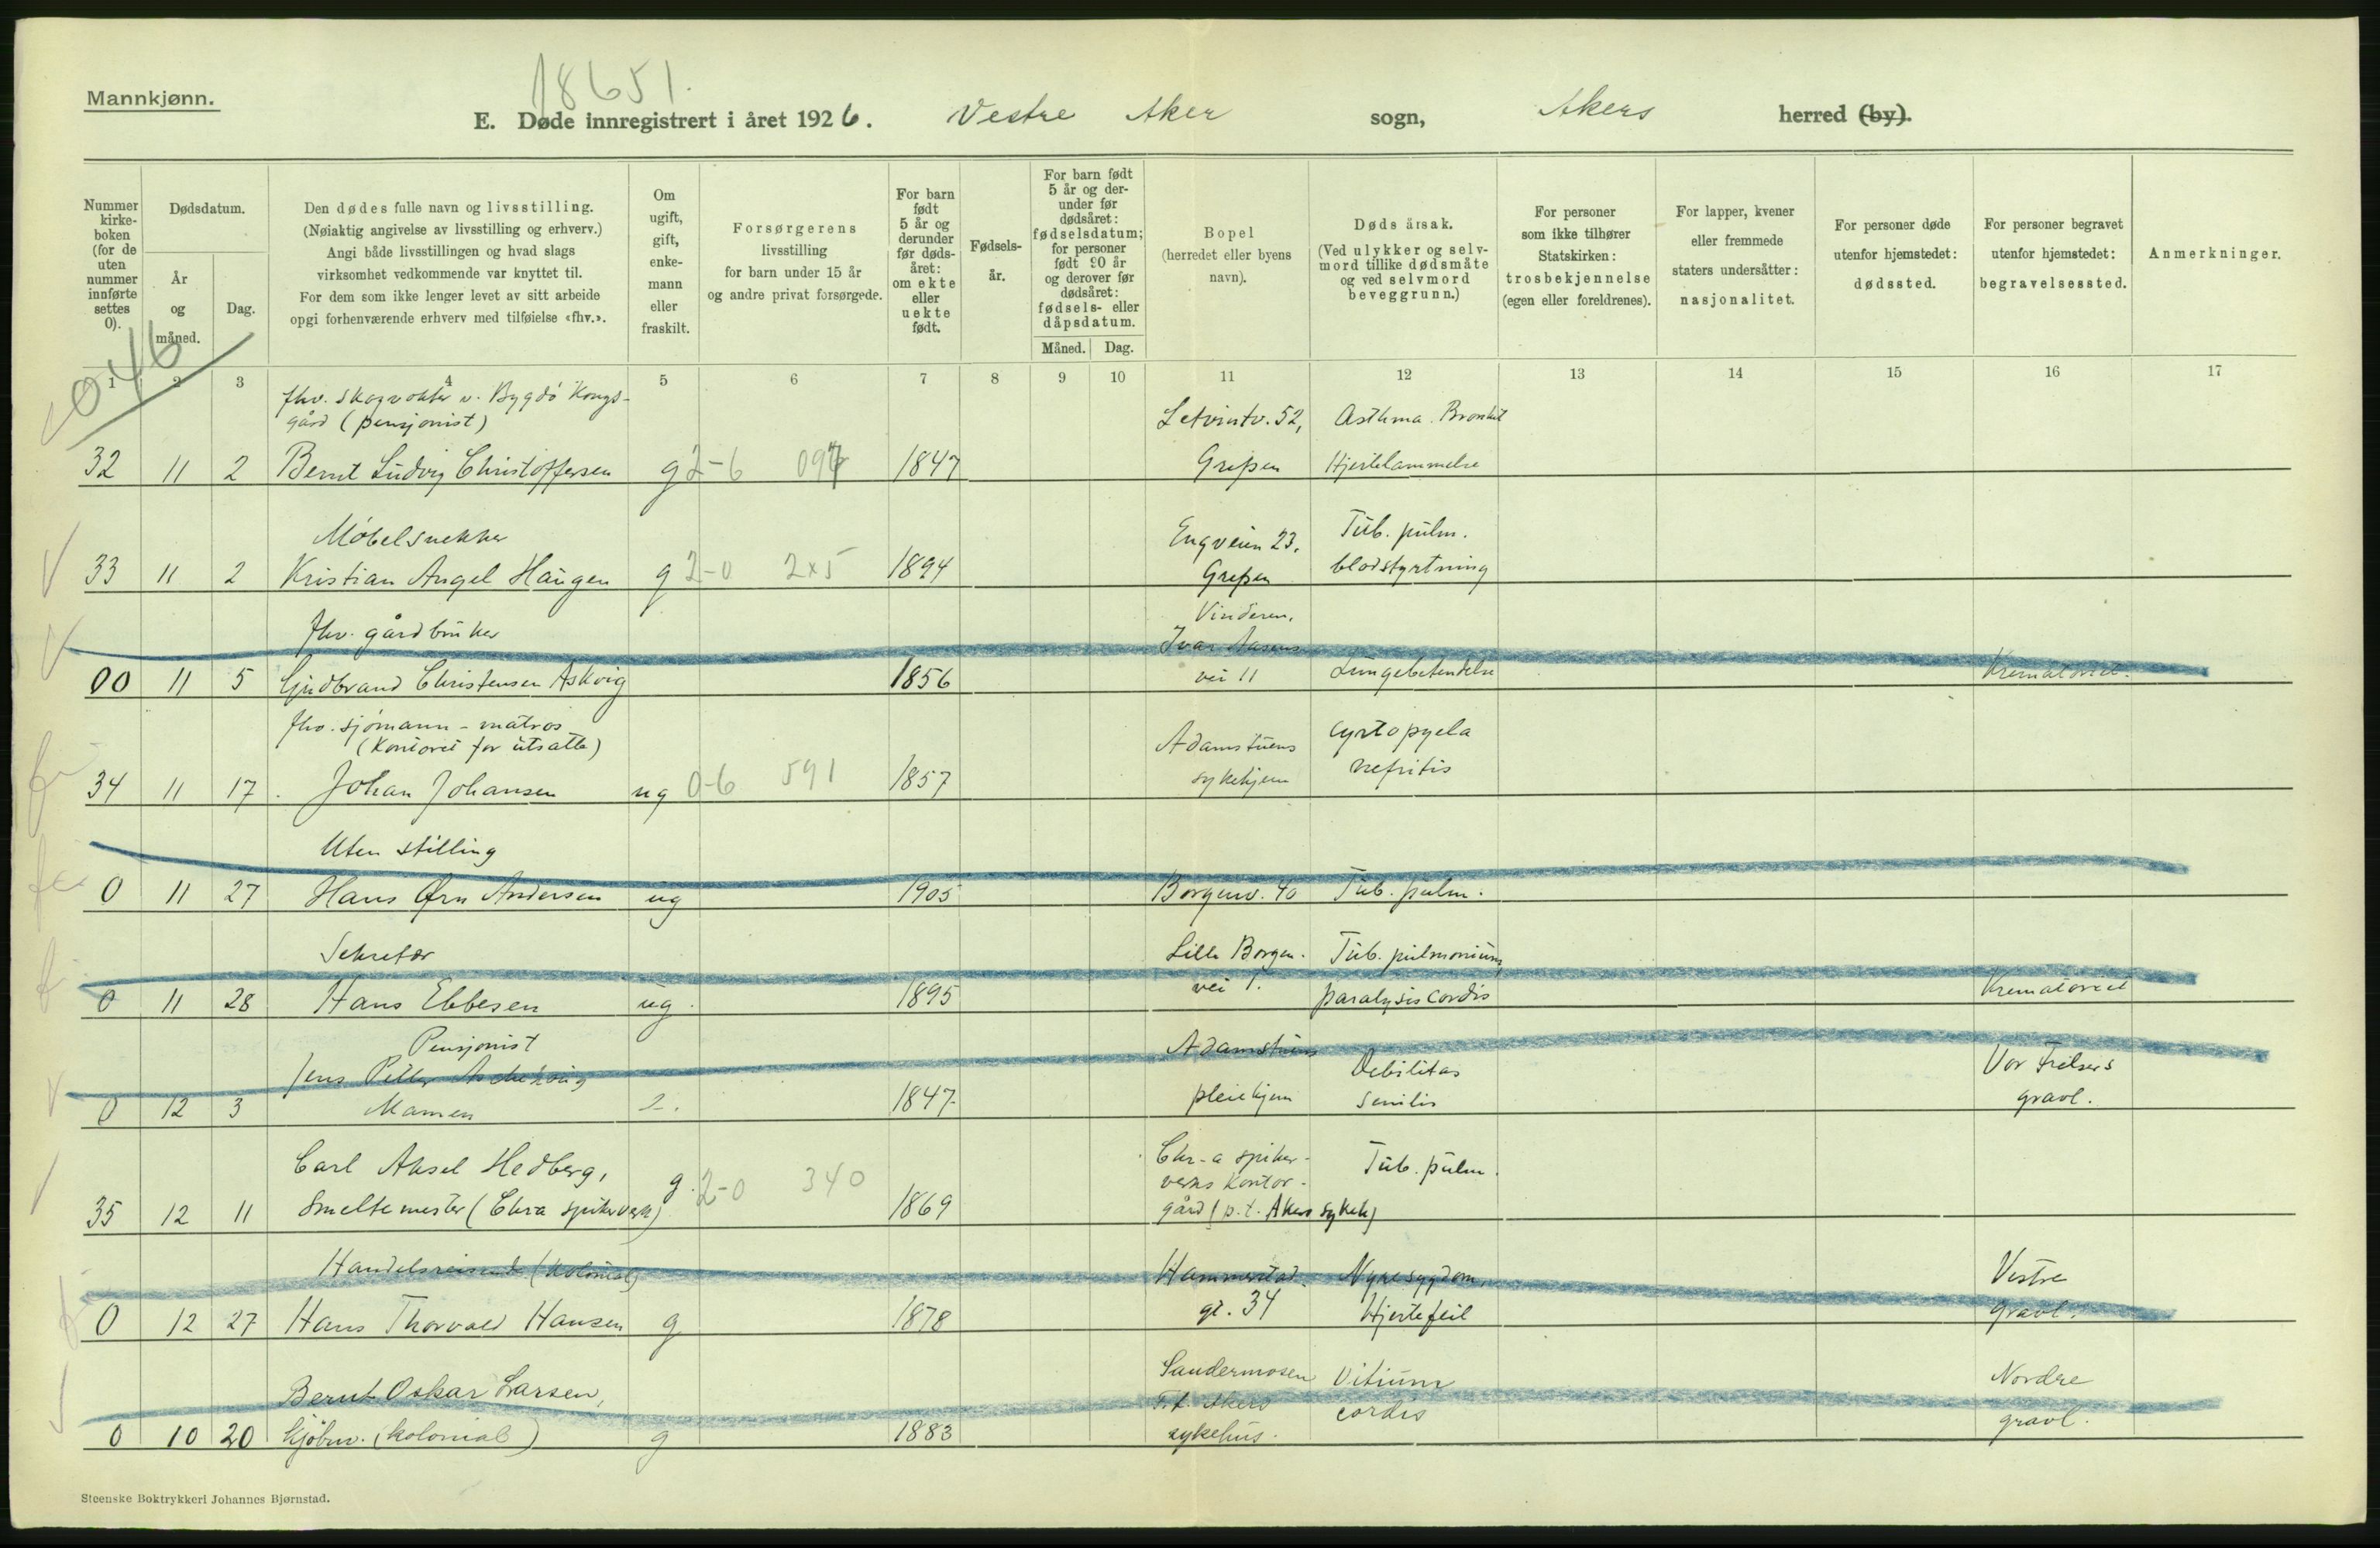 18651.
Mannkjønn.
E. Døde innregistrert i året 1926. Vestre Aker sogn, Akers herred (by).
Nummer kirke-boken (for de uten nummer innførte settes 0).
Dødsdatum.
År og måned.
Dag.
Den dødes fulle navn og livsstilling.
(Nøiaktig angivelse av livsstilling og erhverv.)
Angi både livsstillingen og hvad slags
virksomhet vedkommende var knyttet til.
For dem som ikke lenger levet av sitt arbeide
opgi forhenværende erhverv med tilføielse «fhv.».
Om ugift, gift, enke-mann eller fraskilt.
Forsørgerens
livsstilling
for barn under 15 år
og andre privat forsørgede.
For barn født 5 år og derunder før døds-året: om ekte eller uekte født.
Fødsels-år.
For barn født 5 år og der-under før dødsåret: fødselsdatum; for personer født 90 år og derover før dødsåret: fødsels- eller dåpsdatum.
Måned. Dag.
Bopel
(herredet eller byens
navn).
Døds årsak.
(Ved ulykker og selv-
mord tillike dødsmåte
og ved selvmord
beveggrunn.)
For personer
som ikke tilhører
Statskirken:
trosbekjennelse
(egen eller foreldrenes).
For lapper, kvener
eller fremmede
staters undersåtter:
nasjonalitet.
For personer døde
utenfor hjemstedet:
dødssted.
For personer begravet
utenfor hjemstedet:
begravelsessted.
Anmerkninger.
1 2 3 4 5 6 7 8 9 10 11 12 13 14 15 16 17
046
fhv. skogvokter v. Bygdø Kongs-
gård (pensjonist) Letvintv. 52, Asthma. Bronkit
32 11 2 Bernt Ludvig Christoffersen g 2-6 097 1847 Grefsen Hjertelammelse
Møbelsnekker Engveien 23, Tub. pulm.
33 11 2 Kristian Angel Haugen g 2-0 2x5 1894 Grefsen blodstyrtning
fhv. gårdbruker Vinderen,
Ivar Aasens
00 11 5 Gudbrand Christensen Askvig 1856 vei 11 Lungebetendelse Krematoriet.
fhv. sjømann - matros
(Kontoret for utsatte) Adamstuens cystopyela
34 11 17. Johan Johansen ug 0-6 591 1857 sykehjem nefritis
Uten stilling
0 11 27 Hans Ørn Andersen ug 1905 Borgenv. 40 Tub. pulm.
Sekretær Lille Borgen. Tub. pulmonium,
0 11 28 Hans Ebbesen ug. 1895 vei 1. paralysis cordis Krematoriet
Pensjonist Adamstuens
Jens Petter Aschehoug Debilitas Vor Frelsers
0 12 3 Mamen 2. 1847 pleiehjem senilis gravl.
Carl Aksel Hedberg, g. 2-0 340 Chr-a spiker-
verks kontor- Tub. pulm.
35 12 11 Smeltemester (Chra spikerverk) 1869 gård (p.t. Akers sykeh)
Handelsreisende (kolonial) Hammerstad. Nyresygdom, Vestre
0 12 27 Hans Thorvald Hansen g 1878 gt. 34 Hjertefeil gravl.
Bernt Oskar Larsen, Sandermosen Vitium Nordre
T.t. Akers cordis
0 10 20 kjøbm. (kolonial) g 1883 sykehus. gravl.
Steenske Boktrykkeri Johannes Bjørnstad.